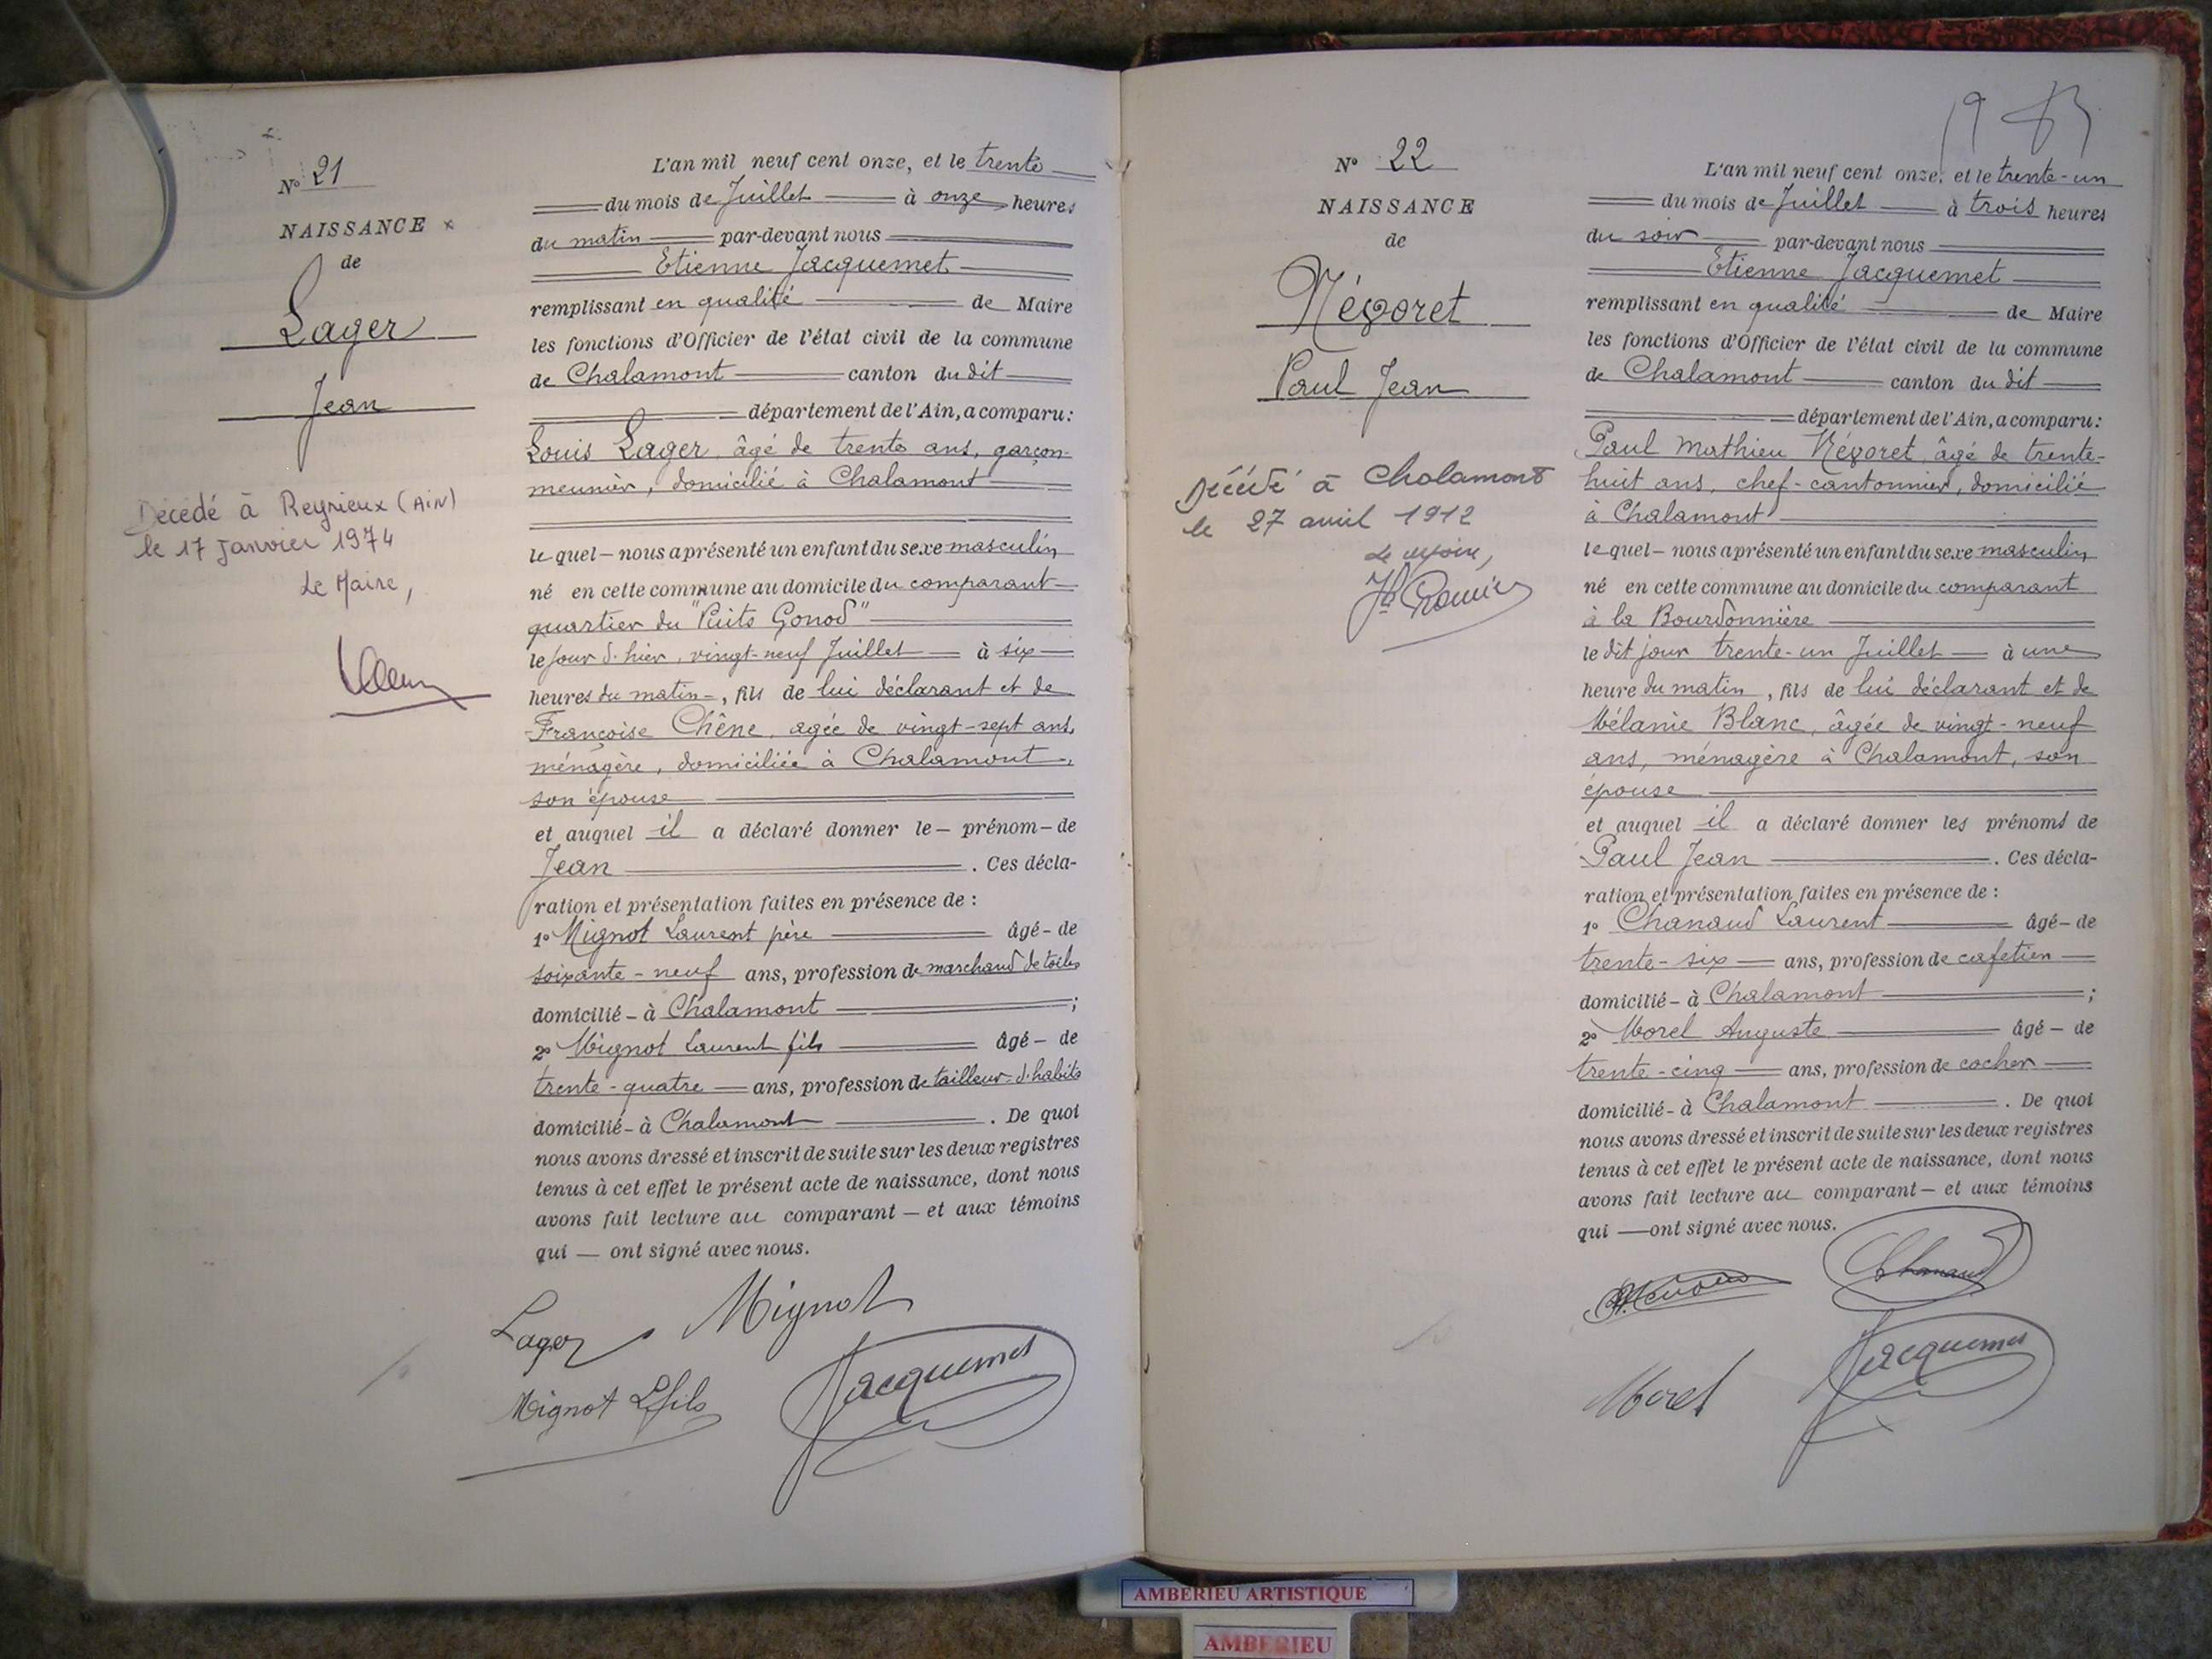 N° 21
NAISSANCE
de
Lager
Jean
Décédé à Reyrieux (AIN)
le 17 Janvier 1974
Le Maire,
L'an mil neuf cent onze, et le trente
du mois de Juillet à onze heures
du matin par-devant nous
Etienne Jacquemet
remplissant en qualité de Maire
les fonctions d'Officier de l'état civil de la commune
de Chalamont canton du dit
département de l'Ain, a comparu:
Louis Lager, âgé de trente ans, garçon-
meunier, domicilié à Chalamont
le quel – nous a présenté un enfant du sexe masculin
né en cette commune au domicile du comparant
quartier du "Puits Gonod"
le jour d'hier, vingt-neuf Juillet à six
heures du matin, fils de lui déclarant et de
Françoise Chêne, agée de vingt-sept ans,
ménagère, domiciliée à Chalamont,
son épouse
et auquel il a déclaré donner le – prénom – de
Jean . Ces décla-
ration et présentation faites en présence de :
1° Mignot Laurent père âgé – de
soixante-neuf ans, profession de marchand de toiles
domicilié – à Chalamont ;
2° Mignot Laurent fils âgé – de
trente-quatre ans, profession de tailleur d'habits
domicilié – à Chalamont . De quoi
nous avons dressé et inscrit de suite sur les deux registres
tenus à cet effet le présent acte de naissance, dont nous
avons fait lecture au comparant – et aux témoins
qui — ont signé avec nous.
Lager Mignot
Mignot L fils Jacquemet
N° 22
NAISSANCE
de
Névoret
Paul Jean
Décédé à Chalamont
le 27 avril 1912
Le Maire,
L'an mil neuf cent onze, et le trente-un
du mois de Juillet à trois heures
du soir par-devant nous
Etienne Jacquemet
remplissant en qualité de Maire
les fonctions d'Officier de l'état civil de la commune
de Chalamont canton du dit
département de l'Ain, a comparu:
Paul Mathieu Névoret, âgé de trente-
huit ans, chef-cantonnier, domicilié
à Chalamont
le quel – nous a présenté un enfant du sexe masculin
né en cette commune au domicile du comparant
à la Bourdonnière
le dit jour trente-un Juillet à une
heure du matin, fils de lui déclarant et de
Mélanie Blanc, âgée de vingt-neuf
ans, ménagère à Chalamont, son
épouse
et auquel il a déclaré donner les prénoms de
Paul Jean . Ces décla-
ration et présentation faites en présence de :
1° Chanaud Laurent âgé – de
trente-six ans, profession de cafetier
domicilié – à Chalamont ;
2° Morel Auguste âgé – de
trente-cinq ans, profession de cocher
domicilié – à Chalamont . De quoi
nous avons dressé et inscrit de suite sur les deux registres
tenus à cet effet le présent acte de naissance, dont nous
avons fait lecture au comparant – et aux témoins
qui — ont signé avec nous.
Chanaud
Morel Jacquemet
AMBERIEU ARTISTIQUE
AMBERIEU